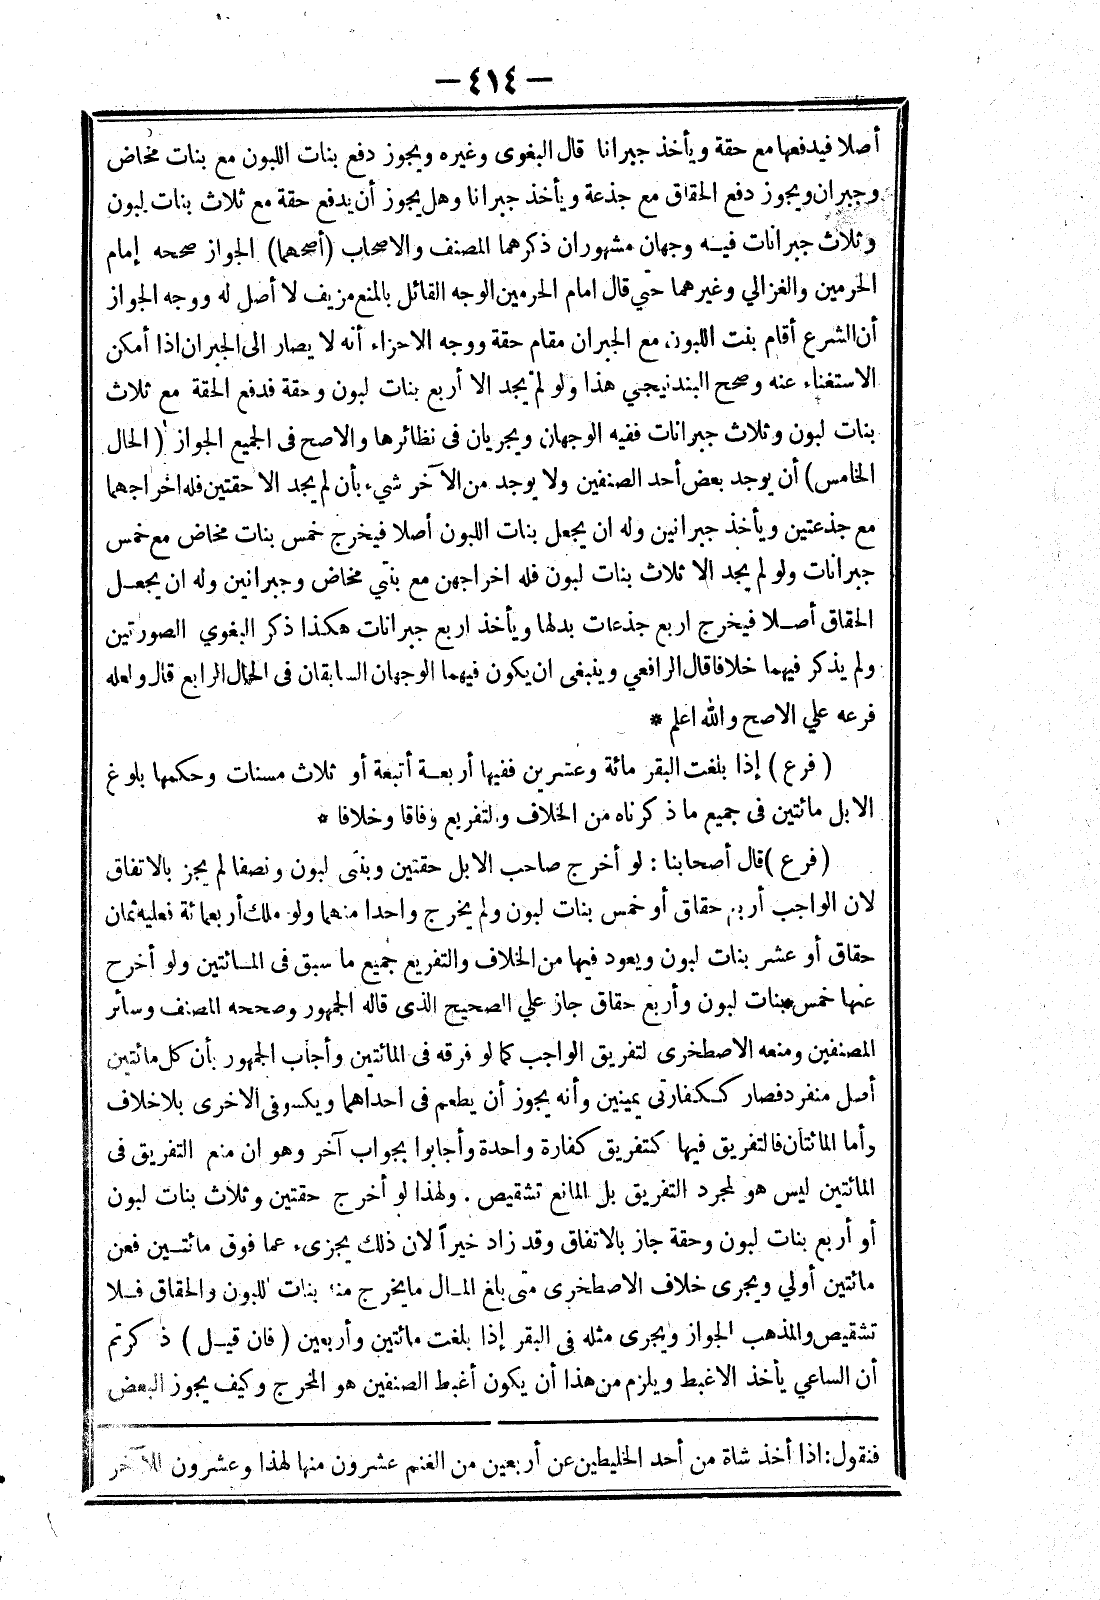 — ٤١٤ —
أصلا فيدفعها مع حقة ويأخذ جبرانا قال البغوى وغيره ويجوز دفع بنات اللبون مع بنات مخاض
وجبران ويجوز دفع الحقاق مع جذعة ويأخذ جبرانا وهل يجوز أن يدفع حقة مع ثلاث بنات لبون
وثلاث جبرانات فيه وجهان مشهوران ذكرهما المصنف والاصحاب (أصحهما) الجواز صححه إمام
الحرمين والغزالي وغيرهما حتي قال امام الحرمين الوجه القائل بالمنع مزيف لا أصل له ووجه الجواز
أن الشرع أقام بنت اللبون مع الجبران مقام حقة ووجه الاجزاء أنه لا يصار الى الجبران اذا أمكن
الاستغناء عنه وصحح البندنيجي هذا ولو لم يجد الا أربع بنات لبون وحقة فدفع الحقة مع ثلاث
بنات لبون وثلاث جبرانات ففيه الوجهان ويجريان فى نظائرها والاصح فى الجميع الجواز (الحال
الخامس) أن يوجد بعض أحد الصنفين ولا يوجد من الآخر شيء بأن لم يجد الا حقتين فله اخراجهما
مع جذعتين ويأخذ جبرانين وله ان يجعل بنات اللبون أصلا فيخرج خمس بنات مخاض مع خمس
جبرانات ولو لم يجد الا ثلاث بنات لبون فله اخراجهن مع بنتي مخاض وجبرانين وله ان يجعـل
الحقاق أصـلا فيخرج اربع جذعات بدلها ويأخذ اربع جبرانات هكذا ذكر البغوي الصورتين
ولم يذكر فيهما خلافا قال الرافعي وينبغى ان يكون فيهما الوجهان السابقان فى الحال الرابع قال ولعله
فرعه علي الاصح والله اعلم *
(فرع) إذا بلغت البقر مائة وعشرين ففيها أربعـة أتبعة أو ثلاث مسنات وحكمها بلوغ
الابل مائتين فى جميع ما ذكرناه من الخلاف والتفريع وفاقا وخلافا *
(فرع) قال أصحابنا : لو أخرج صاحب الابل حقتين وبنتى لبون ونصفا لم يجز بالاتفاق
لان الواجب أربع حقاق أو خمس بنات لبون ولم يخرج واحدا منهما ولو ملك أربعمائة فعليه ثمان
حقاق أو عشر بنات لبون ويعود فيها من الخلاف والتفريع جميع ما سبق فى المـائتين ولو أخرج
عنها خمس بنات لبون وأربع حقاق جاز علي الصحيح الذى قاله الجمهور وصححه المصنف وسائر
المصنفين ومنعه الاصطخرى لتفريق الواجب كما لو فرقه فى المائتين وأجاب الجمهور بأن كل مائتين
أصل منفرد فصار ككفارتى يمينين وأنه يجوز أن يطعم فى احداهما ويكسو فى الاخرى بلا خلاف
وأما المائتان فالتفريق فيها كتفريق كفارة واحدة وأجابوا بجواب آخر وهو ان منع التفريق فى
المائتين ليس هو لمجرد التفريق بل المانع تشقيص . ولهذا لو أخرج حقتين وثلاث بنات لبون
أو أربع بنات لبون وحقة جاز بالاتفاق وقد زاد خيراً لان ذلك يجزىء عما فوق مائتـين فعن
مائتين أولي ويجرى خلاف الاصطخرى متى بلغ المـال ما يخرج منه بنات اللبون والحقاق فـلا
تشقيص والمذهب الجواز ويجرى مثله فى البقر إذا بلغت مائتين وأربعين (فان قيـل) ذكرتم
أن الساعي يأخذ الاغبط ويلزم من هذا أن يكون أغبط الصنفين هو المخرج وكيف يجوز البعض
فنقول: اذا أخذ شاة من أحد الخليطين عن أربعين من الغنم عشرون منها لهذا وعشرون للآخر